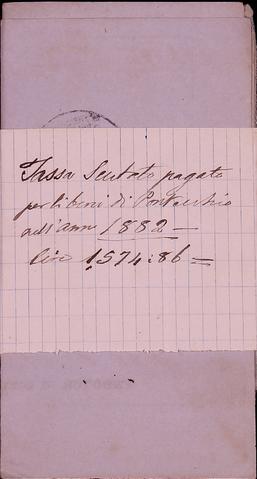 Tassa Scutato pagato
per li beni di Pontecchio
nell'anno 1882 —
lire 1,574:86 =